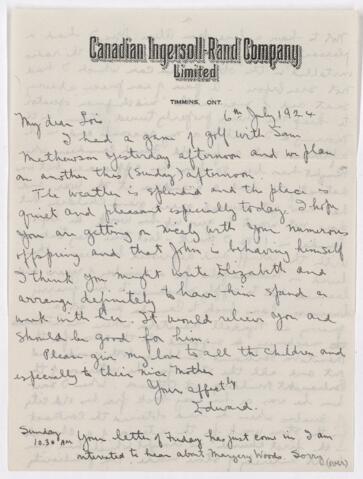 Canadian Ingersoll-Rand Company
Limited
TIMMINS, ONT.
6th July 1924
My dear Lois
I had a game of golf with Sam
Mathewson yesterday afternoon and we plan
on another this (Sunday) afternoon.
The weather is splendid and the place is
quiet and pleasant especially today. I hope
you are getting on nicely with your numerous
offspring and that John is behaving himself
I think you might write Elizabeth and
arrange definitely to have him spend a
week with her. It would relieve you and
should be good for him.
Please give my love to all the children and
especially to their nice Mother
Your affectly
Edward.
Sunday
10.30 AM Your letter of Friday has just come in. I am
interested to hear about Margery Woods. Sorry
(over)